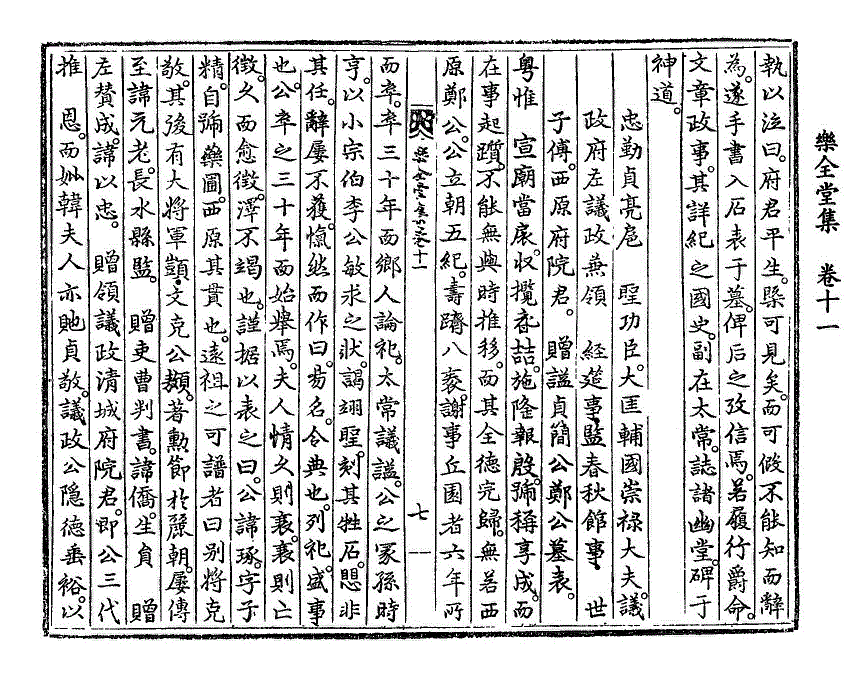 樂全堂集　卷十一
執以泣曰。府君平生。槩可見矣。而可僚不能知而辭
爲。遂手書入石表于墓。俾后之攷信焉。若履行爵命。
文章政事。其詳紀之國史。副在太常。誌諸幽堂。碑于
神道。
忠勤貞亮扈　聖功臣。大匡輔國崇祿大夫。議
政府左議政兼領　經筵事,監春秋館事,　世
子傅。西原府院君。　贈謚貞簡公鄭公墓表。
粤惟　宣廟當扆。收攬喬喆。施隆報殷。號稱享成。而
在事起躓。不能無與時推移。而其全德完歸。無若西
原鄭公。公立朝五紀。壽躋八袠。謝事丘園者六年所
樂全堂集卷之十一
七
而卒。卒三十年而鄉人論祀。太常議謚。公之冢孫時
亨。以小宗伯李公敏求之狀。謁翊聖。刻其牲石。愳非
其任。辭屢不獲。愾然而作曰。易名。令典也。列祀。盛事
也。公卒之三十年而始擧焉。夫人情久則衰。衰則亡
徵。久而愈徵。澤不竭也。謹据以表之曰。公諱琢。字子
精。自號藥圃。西原其貫也。遠祖之可譜者曰別將克
敬。其後有大將軍顗,文克公䫨。著勳節於麗朝。屢傳
至諱元老。長水縣監。　贈吏曹判書。諱僑。生員　贈
左賛成。諱以忠。　贈領議政淸城府院君。卽公三代
推　恩。而妣韓夫人亦貤貞敬。議政公隱德垂裕。以